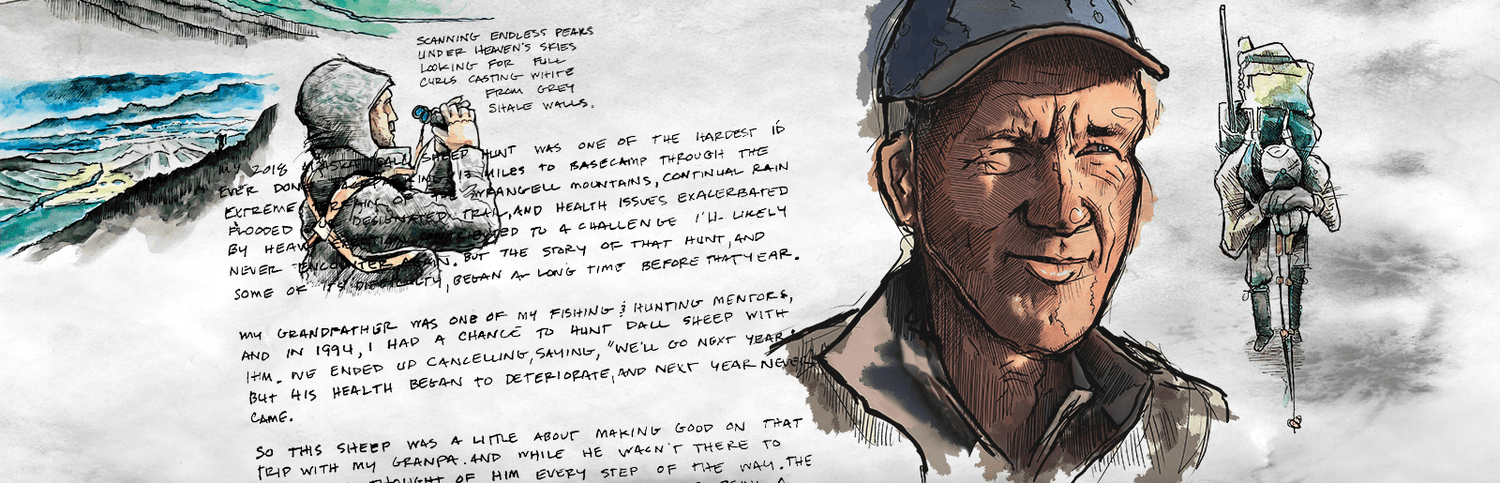 SCANNING ENDLESS PEAKS
UNDER HEAVEN'S SKIES
LOOKING FOR FULL
CURLS CASTING WHITE
FROM GREY
SHALE WALLS.
MY 2018 DALL SHEEP HUNT WAS ONE OF THE HARDEST I'D
EVER DONE 13 MILES TO BASECAMP THROUGH THE
EXTREME TERRAIN OF THE WRANGELL MOUNTAINS, CONTINUAL RAIN
FLOODED DESIGNATED TRAIL, AND HEALTH ISSUES EXACERBATED
BY HEAVY TO A CHALLENGE I'LL LIKELY
NEVER ENCOUNTER AGAIN. BUT THE STORY OF THAT HUNT, AND
SOME OF ITS DIFFICULTY, BEGAN A LONG TIME BEFORE THAT YEAR.
MY GRANDFATHER WAS ONE OF MY FISHING & HUNTING MENTORS,
AND IN 1994, I HAD A CHANCE TO HUNT DALL SHEEP WITH
HIM. WE ENDED UP CANCELLING, SAYING, "WE'LL GO NEXT YEAR."
BUT HIS HEALTH BEGAN TO DETERIORATE, AND NEXT YEAR NEVER
CAME.
SO THIS SHEEP WAS A LITTLE ABOUT MAKING GOOD ON THAT
TRIP WITH MY GRANPA. AND WHILE HE WASN'T THERE TO
THOUGHT OF HIM EVERY STEP OF THE WAY. THE